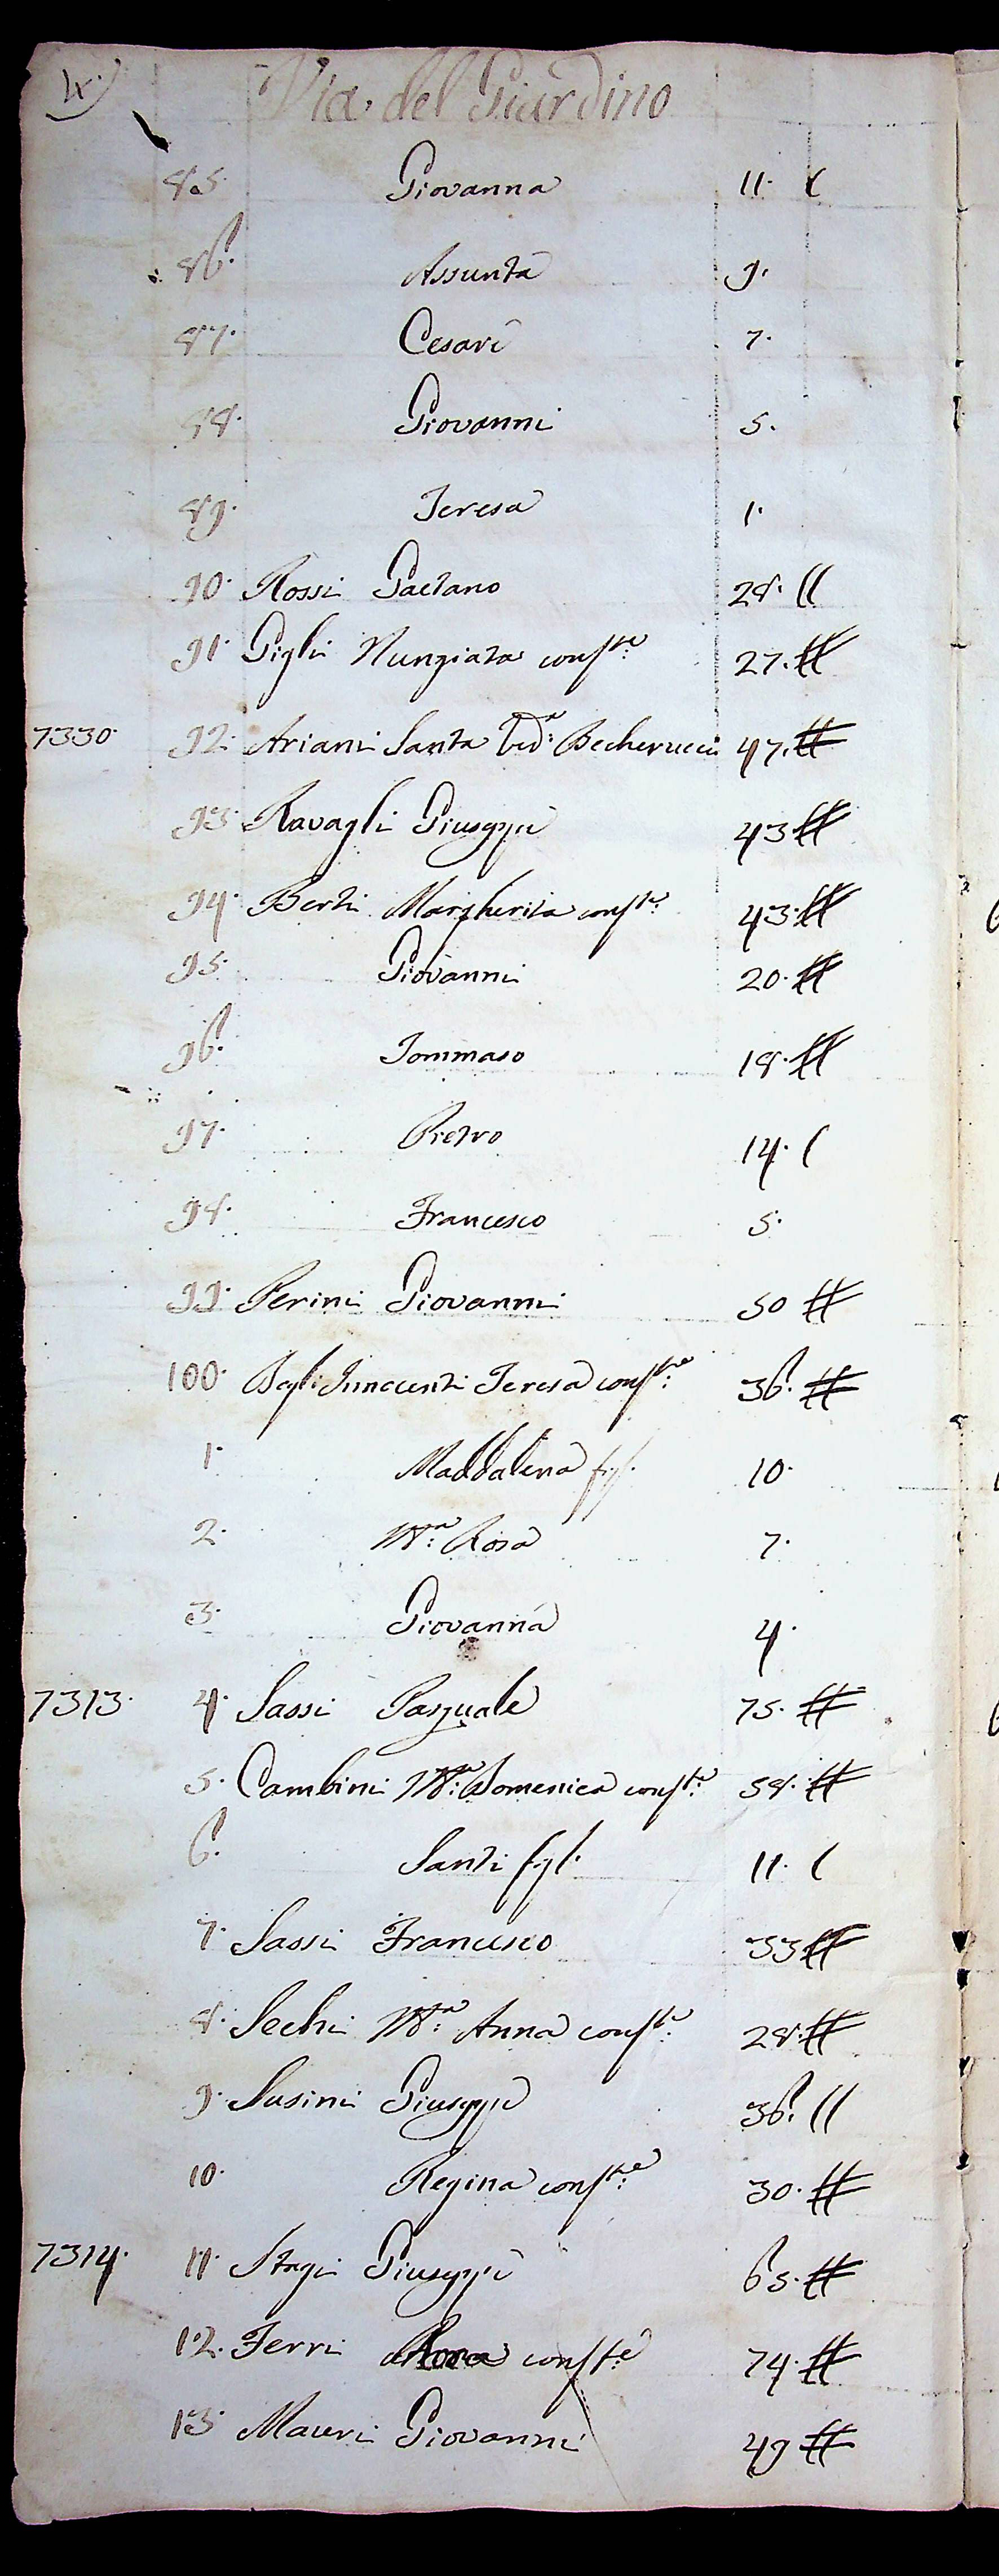 4.
Via del Giardino
85. Giovanna 11. (
86. Assunta 9.
87. Cesare 7.
88. Giovanni 5.
89. Teresa 1.
90. Rossi Gaetano 28. ((
91. Gigli Nunziata conste. 27. #
7330. 92. Ariani Santa Veda. Becherucci 47. #
93. Ravagli Giuseppe 43 #
94. Berti Margherita conste. 43. #
95. Giovanni 20. #
96. Tommaso 18. #
97. Pietro 14. (
98. Francesco 5.
99. Perini Giovanni 50 #
100. Degl'Innocenti Teresa conste. 36. #
1. Maddalena figl. 10.
2. Ma. Rosa 7.
3. Giovanna 4.
7313. 4. Sassi Pasquale 75. #
5. Cambini Ma. Domenica conste. 58. #
6. Santi figl. 11. (
7. Sassi Francesco 33 #
8. Sechi Ma. Anna conste. 28. #
9. Susini Giuseppe 36. ((
10. Regina conste. 30. #
7314. 11. Stagi Giuseppe 65. #
12. Ferri conste. 74. #
13. Mauri Giovanni 49 #